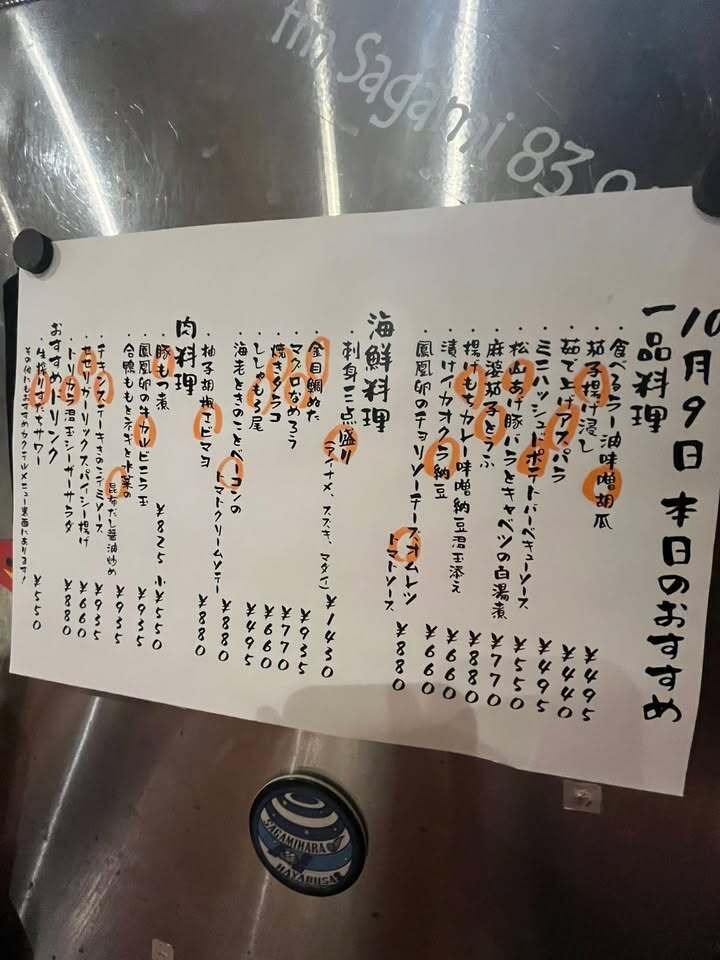 Sagami 83
10月9日 本日のおすすめ
一品料理
・食べるラー油味噌胡瓜 ¥495
・茄子揚げ浸し ¥440
・茹で上げアスパラ ¥495
・ミニハッシュドポテトバーベキューソース ¥550
・松山あげ豚バラとキャベツの白湯煮 ¥770
・麻婆茄子とうふ ¥880
・揚げもちカレー味噌納豆温玉添え ¥660
・漬けイカオクラ納豆 ¥660
・鳳凰卵のチョリソーチーズオムレツ
トマトソース ¥880
海鮮料理
・刺身三点盛り (アイナメ、スズキ、マダイ) ¥1430
・金目鯛ぬた ¥935
・マグロなめろう ¥770
・焼きタラコ ¥660
・ししゃも3尾 ¥495
・海老ときのことベーコンの
トマトクリームソテー ¥880
・柚子胡椒エビマヨ ¥880
肉料理
・豚もつ煮 ¥825 小¥550
・鳳凰卵の牛カルビニラ玉 ¥935
・合鴨ももとネギと水菜の
昆布だし醤油炒め ¥935
・チキンステーキきのこデミソース ¥935
・せせりガーリックスパイシー揚げ ¥660
・トロカラ温玉シーザーサラダ ¥880
おすすめドリンク
・生搾りすだちサワー ¥550
その他にもおすすめカクテルメニュー裏面にあります!
SAGAMIHARA
HAYABUSA